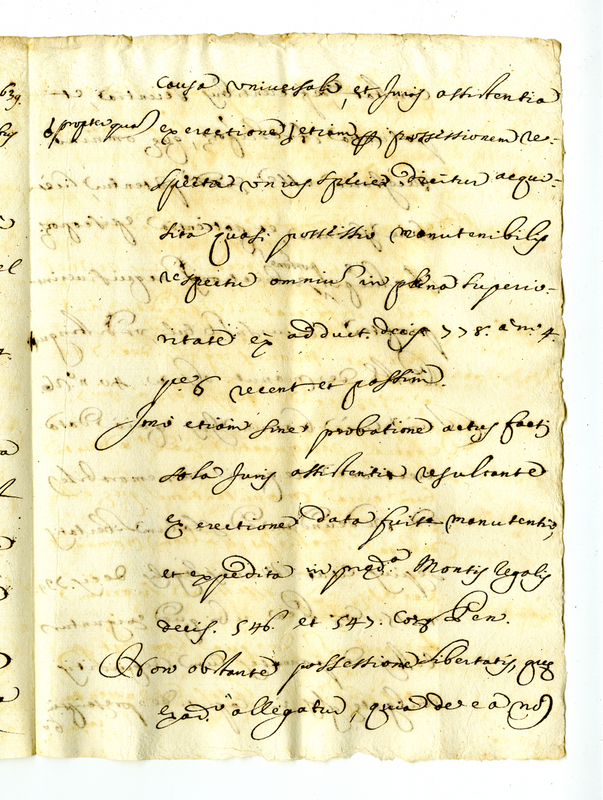 639.
causa universali, et Juris assistentia
propter quas ex erectione, etiam possessionem re-
spectu unius speciei dicitur acqui-
sita quasi possessio manutenibilis
respectu omniu' in plena superio-
ritate ex adduct. decis. 778. a n.º 4.
p.e 6 recent. et passim.
Imò etiam sine probatione actus facti
sola Juris assistentia resultante
ex erectione data fuit manutentio,
et expedita in Montis Regalis
decis. 546. et 547. Cor. Pen.
Non obstante possessione libertatis, que
ex ad.º allegatur, quia de ea nō